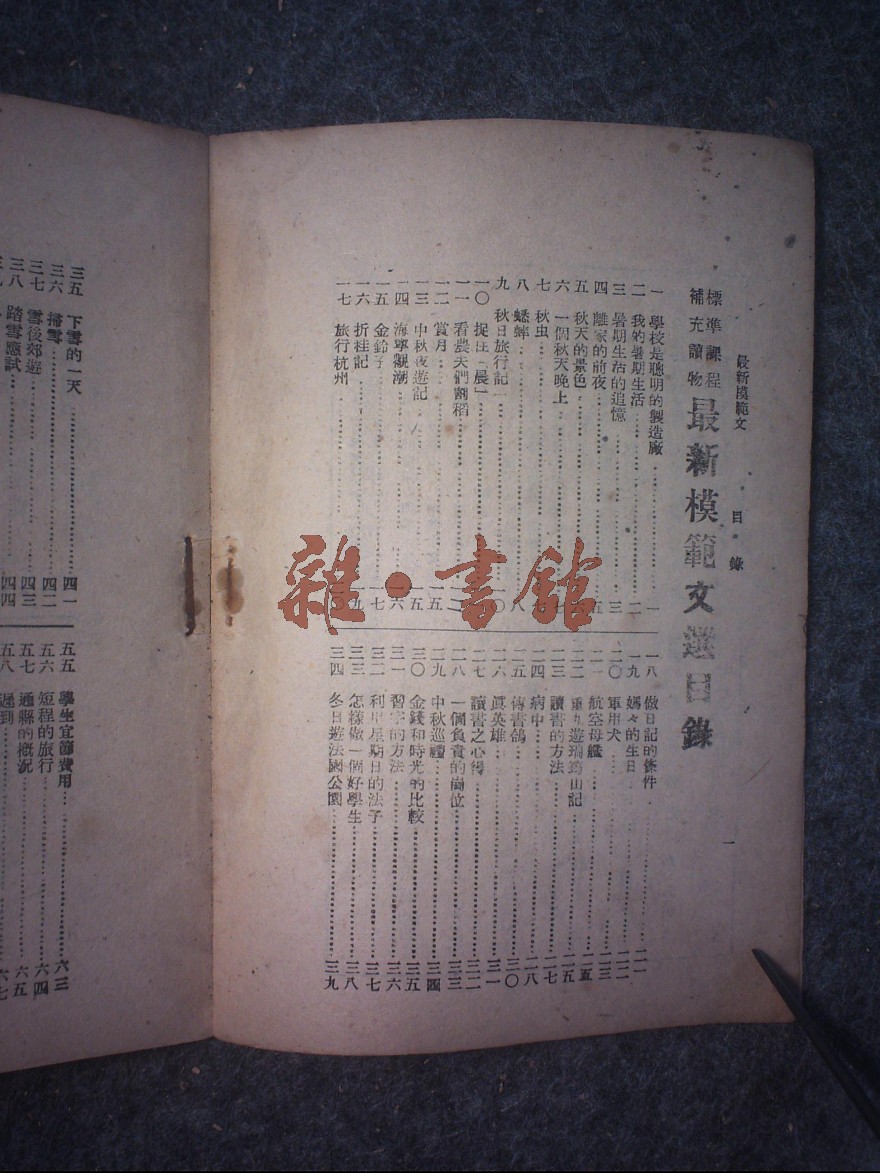 最新模範文　目錄　一
標準課程
補充讀物
最新模範文選目錄
一　學校是聰明的製造廠……一
二　我的暑期生活……二
三　暑期生活的追憶……三
四　離家的前夜……五
五　秋天的景色
六　一個秋天晚上
七　秋虫
八　蟋蟀……八
九　秋日旅行記
一〇　捉迋「晨」
一一　看農夫們割稻……一二
一二　賞月……一五
一三　中秋夜遊記……一五
一四　海寧觀潮……一六
一五　金鈴子……一七
一六　折桂記……一九
一七　旅行杭州……二〇
一八　做日記的條件……二一
一九　媽々的生日……二二
二〇　軍用犬……二三
二一　航空母艦……二五
二二　重九遊瑞筠山記……二五
二三　讀書的方法……二七
二四　病中……二八
二五　傳書鴿……三〇
二六　眞英雄……三一
二七　讀書之心得……三二
二八　一個負責的崗位……三三
二九　中秋巡禮……三四
三〇　金錢和時光的比較……三五
三一　習字的方法……三六
三二　利用星期日的法子……三七
三三　怎樣做一個好學生……三八
三四　冬日遊法國公園……三九
三五　下雪的一天……四一
三六　掃雪……四二
三七　雪後郊遊……四三
三八　踏雪應試……四四
五五　學生宜節費用……六三
五六　短程的旅行……六四
五七　通縣的概況……六五
五八　遲到……六七
雜·書館